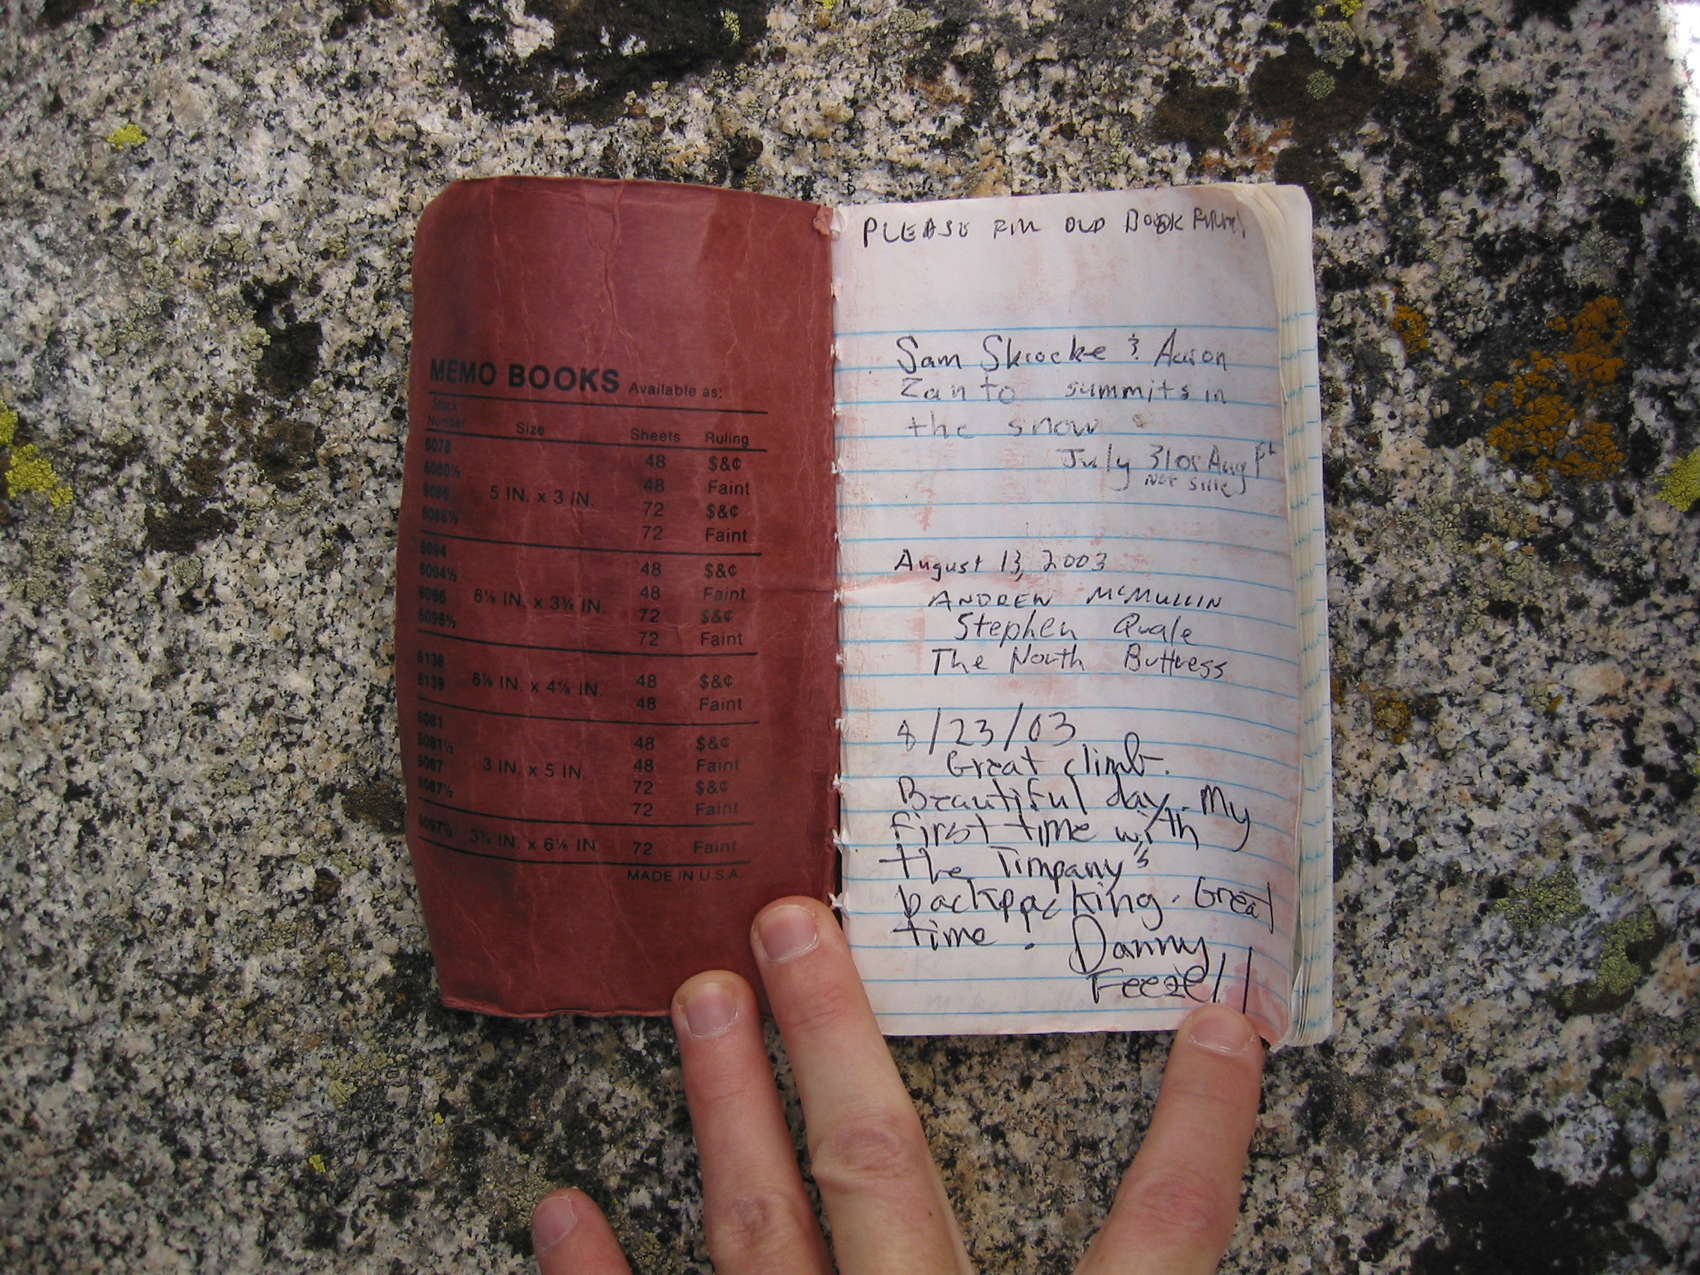 MEMO BOOKS Available as:
Stock
Number Size Sheets Ruling
6078 48 $&¢
6080½ 48 Faint
5 IN. x 3 IN.
6086 72 $&¢
6086½ 72 Faint
6094 48 $&¢
6094½ 48 Faint
6⅛ IN. x 3¾ IN.
6096 72 $&¢
6096½ 72 Faint
6138 48 $&¢
6⅛ IN. x 4⅛ IN.
6139 48 Faint
6081 48 $&¢
6081½ 48 Faint
3 IN. x 5 IN.
6087 72 $&¢
6087½ 72 Faint
3¾ IN. x 6⅛ IN. 72 Faint
MADE IN U.S.A.
PLEASE FILL OLD BOOK FIRST!
Sam Skrocke & Aaron
Zanto summits in
the snow
July 31 or Aug 1st
NOT SURE
August 13, 2003
ANDREW McMULLIN
Stephen Quale
The North Buttress
8/23/03
Great climb.
Beautiful day. My
first time with
the Timpany's
backpacking. Great
time. Danny
Feezell